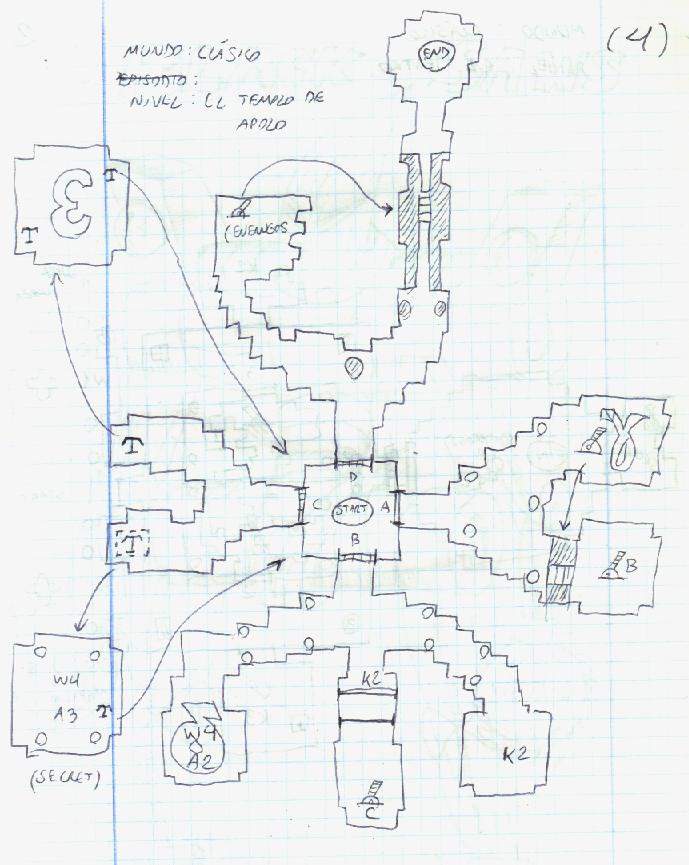 (4)
MUNDO: CLÁSICO
EPISODIO:
NIVEL: EL TEMPLO DE
APOLO
END
T
3
T
(ENEMIGOS
T
D
C
START
A
B
T
B
W4
A3
T
(SECRET)
K2
W4
A2
K2
C